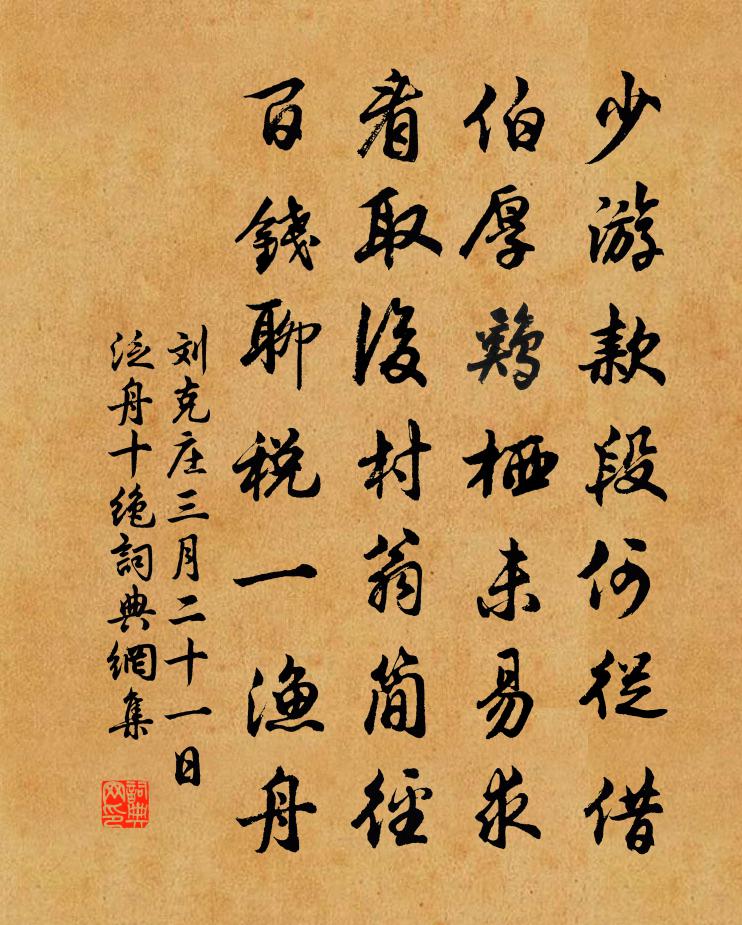 少游款段何從借
伯厚鷄栖未易求
看取後村翁簡徑
百錢聊税一漁舟
刘克庄三月二十一日
泛舟十绝詞典網集
詞典网印